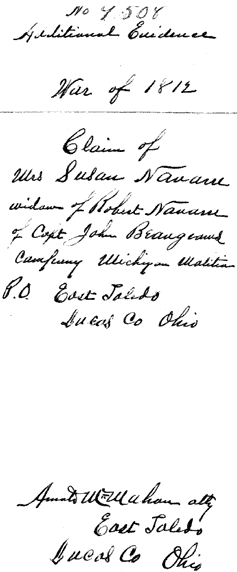 No 7508
Additional Evidence
War of 1812
Claim of
Mrs Susan Navarre
widow of Robert Navarre
of Capt John Beaugrand
Company Michigan Malitia
P.O. East Toledo
Lucas Co Ohio
McMahan atty
East Toledo
Lucas Co Ohio